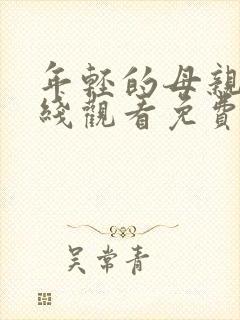 年轻的母親
綫觀看免費
吴常青